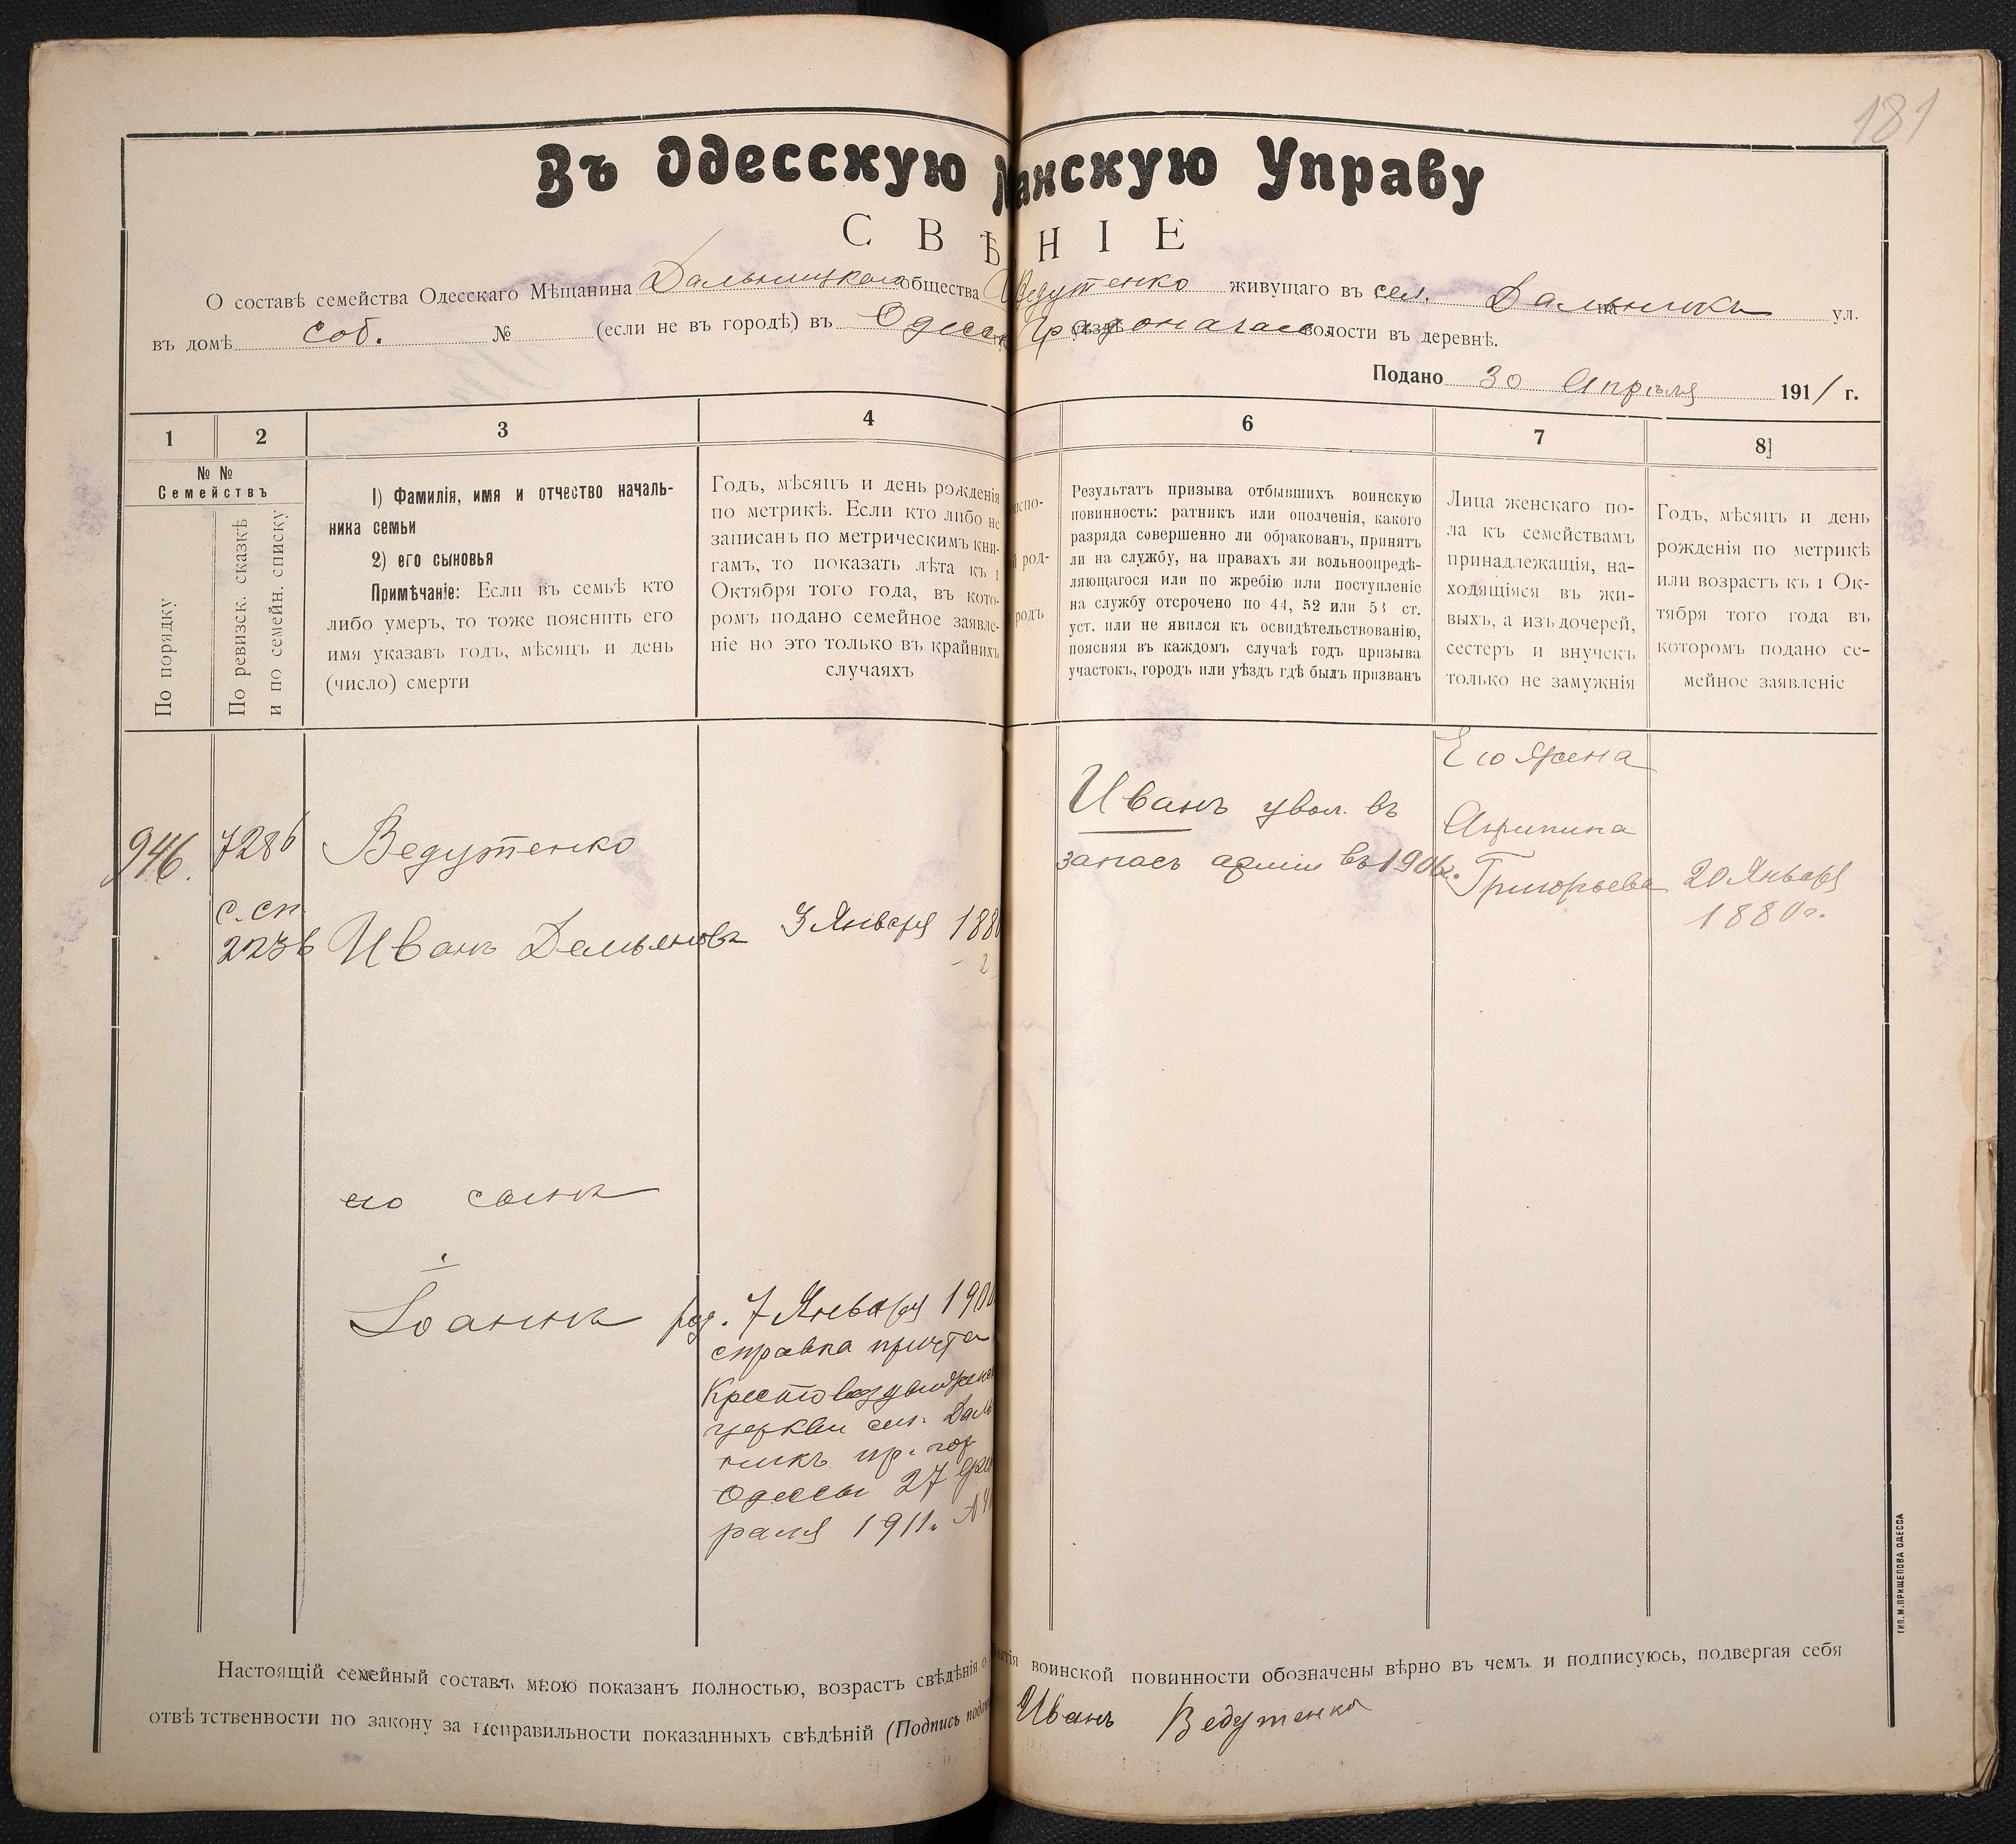 181
Въ Одесскую анскую Управу
СВѢНІЕ
О составѣ семейства Одесскаго Мѣщанина Дальницкаго общества Ведутенко живущаго въ сел. Дальникъ на ул.
въ домѣ соб. № (если не въ городѣ) въ Одесск. уѣздѣ Градоначал волости въ деревнѣ.
Подано 30 Апрѣля 1911 г.
1 2 3 4 6 7 8
№ №
Семействъ
По порядку
По ревизск. сказкѣ
и по семейн. списку
1) Фамилія, имя и отчество началь-
ника семьи
2) его сыновья
Примѣчаніе: Если въ семьѣ кто
либо умеръ, то тоже пояснить его
имя указавъ годъ, мѣсяцъ и день
(число) смерти
Годъ, мѣсяцъ и день рожденія
по метрикѣ. Если кто либо не
записанъ по метрическимъ кни-
гамъ, то показать лѣта къ 1
Октября того года, въ кото-
ромъ подано семейное заявле-
ніе но это только въ крайнихъ
случаяхъ
испо-
й род-
родъ
Результатъ призыва отбывшихъ воинскую
повинность: ратникъ или ополченія, какого
разряда совершенно ли обракованъ, принятъ
ли на службу, на правахъ ли вольноопредѣ-
ляющагося или по жребію или поступленіе
на службу отсрочено по 44, 52 или 53 ст.
уст. или не явился къ освидѣтельствованію,
поясняя въ каждомъ случаѣ годъ призыва
участокъ, городъ или уѣздъ гдѣ былъ призванъ
Лица женскаго по-
ла къ семействамъ
принадлежащія, на-
ходящіяся въ жи-
выхъ, а изъ дочерей,
сестеръ и внучекъ
только не замужнія
Годъ, мѣсяцъ и день
рожденія по метрикѣ
или возрастъ къ 1 Ок-
тября того года въ
которомъ подано се-
мейное заявленіе
946.
7286
с. сп.
2236
Ведутенко
Иванъ Демьяновъ
3 Января 188
Иванъ увол. въ
запасъ арміи въ 1906г.
Его жена
Агрипина
Григорьева
20 Января
1880г.
его сынъ
1
Іоаннъ
род. 7 Января 190
справка причта
Крестовоздвижен
церкви сел. Даль
никъ пр. гор.
Одессы 27 фев
раля 1911г. №
Настоящій семейный составъ мною показанъ полностью, возрастъ свѣдѣнія о бытія воинской повинности обозначены вѣрно въ чемъ и подписуюсь, подвергая себя
отвѣтственности по закону за неправильности показанныхъ свѣдѣній (Подпись пода Иванъ Ведутенко
ТИП. М. ПРИЩЕПОВА ОДЕССА